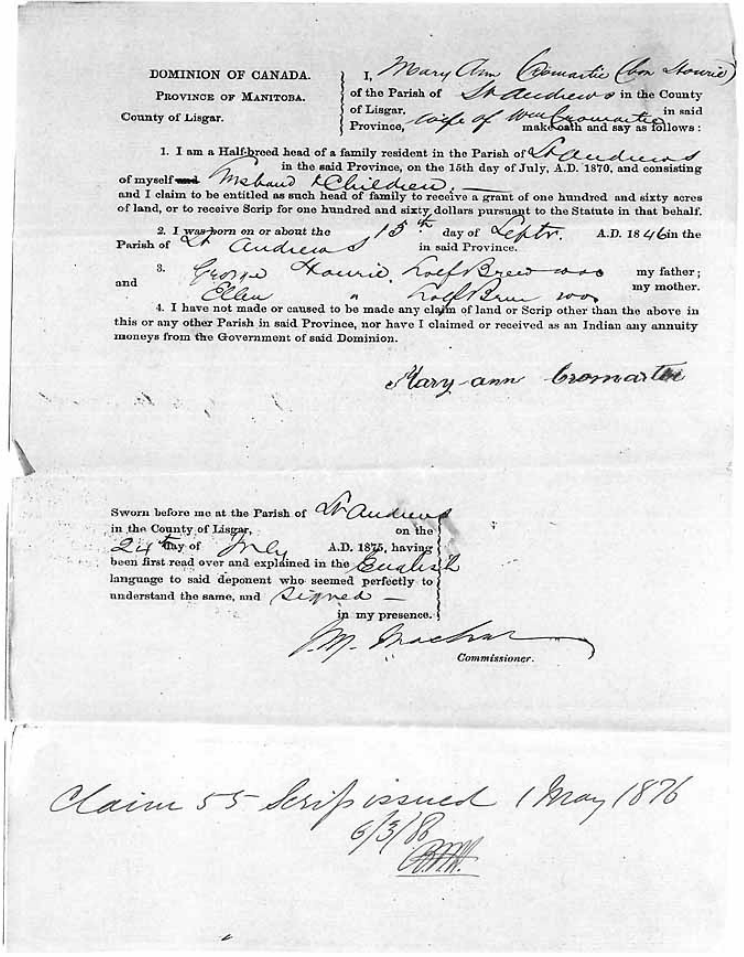 DOMINION OF CANADA.
PROVINCE OF MANITOBA.
County of Lisgar.
I, Mary Ann Cromartie (born Hourie)
of the Parish of St Andrews in the County
of Lisgar, in said
Province, wife of Wm Cromartie make oath and say as follows:
1. I am a Half-breed head of a family resident in the Parish of St Andrews
in the said Province, on the 15th day of July, A.D. 1870, and consisting
of myself and Husband & Children.
and I claim to be entitled as such head of family to receive a grant of one hundred and sixty acres
of land, or to receive Scrip for one hundred and sixty dollars pursuant to the Statute in that behalf.
2. I was born on or about the 15th day of Septr. A.D. 1846 in the
Parish of St Andrews in said Province.
3. George Hourie Half Breed was my father;
and Ellen " Half Breed was my mother.
4. I have not made or caused to be made any claim of land or Scrip other than the above in
this or any other Parish in said Province, nor have I claimed or received as an Indian any annuity
moneys from the Government of said Dominion.
Mary-ann Cromartie
Sworn before me at the Parish of St Andrews
in the County of Lisgar, on the
24th day of July A.D. 1875, having
been first read over and explained in the English
language to said deponent who seemed perfectly to
understand the same, and signed
in my presence.
J. M. Machar
Commissioner.
Claim 55 Scrip issued 1 May 1876
6/3/86